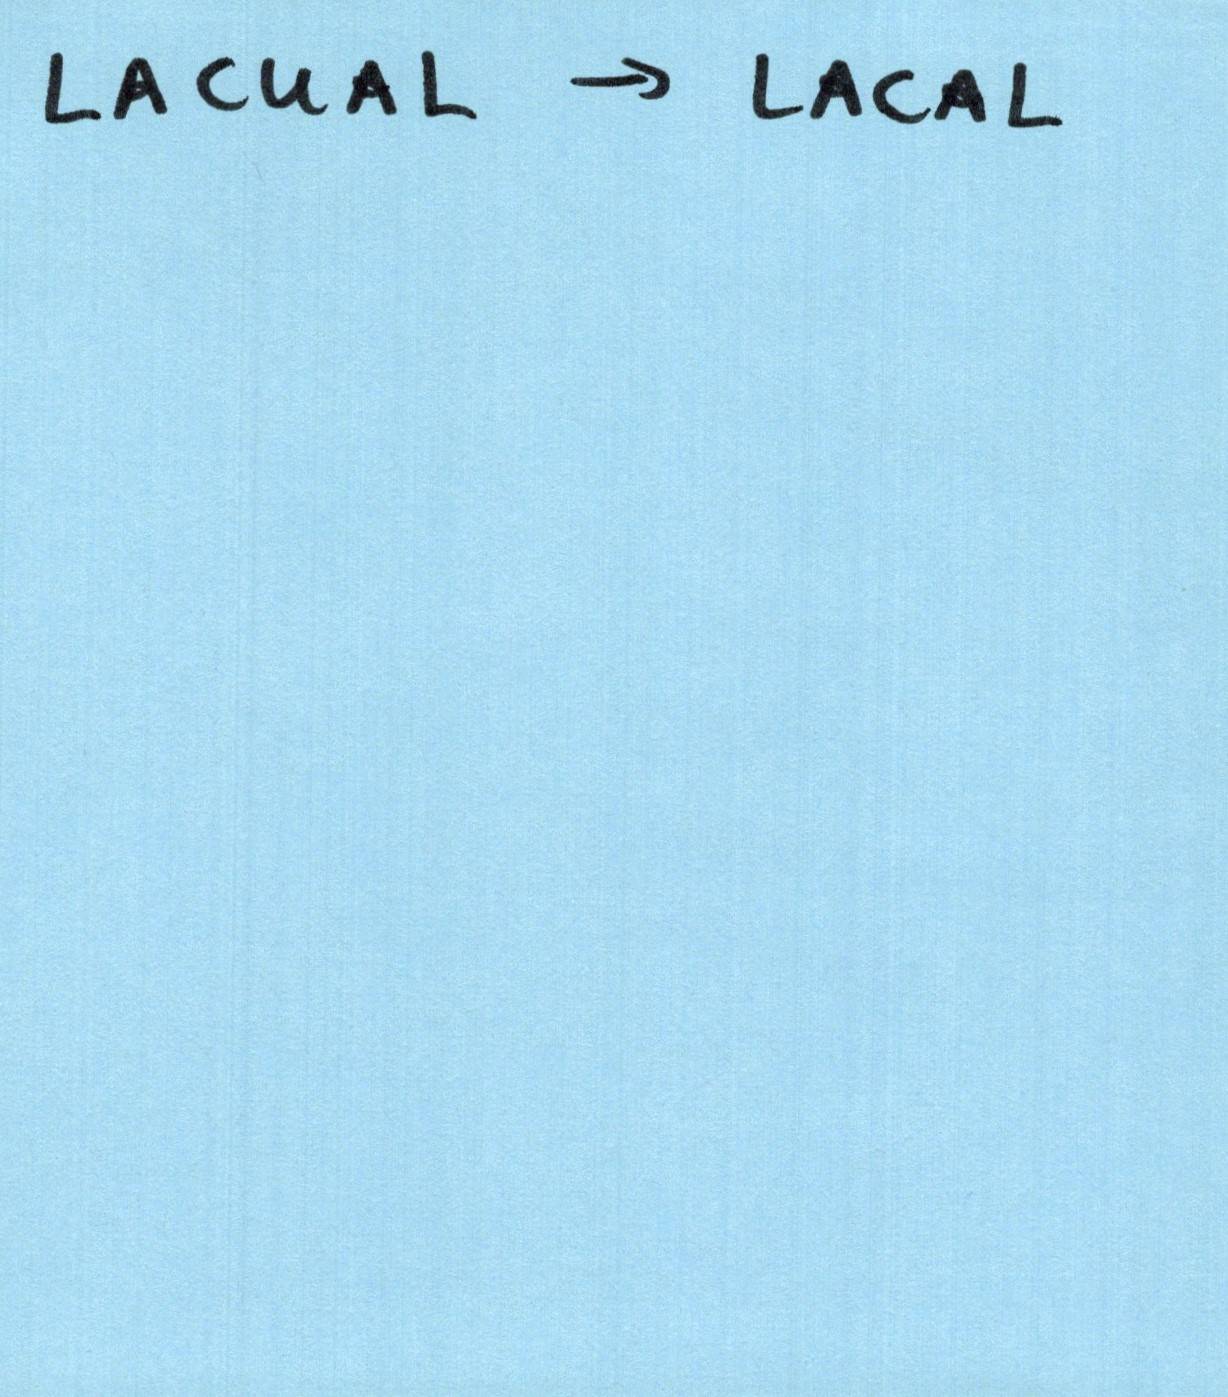 LACUAL → LACAL